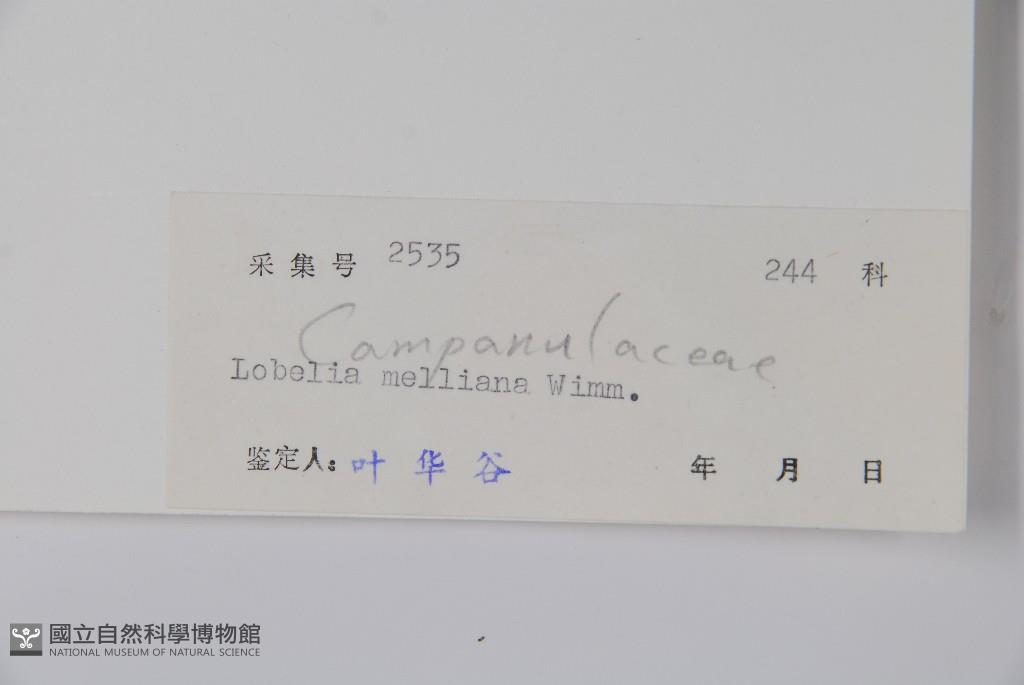 采集号 2535 244 科
Campanulaceae
Lobelia melliana Wimm.
鉴定人: 叶华谷 年 月 日
國立自然科學博物館
NATIONAL MUSEUM OF NATURAL SCIENCE